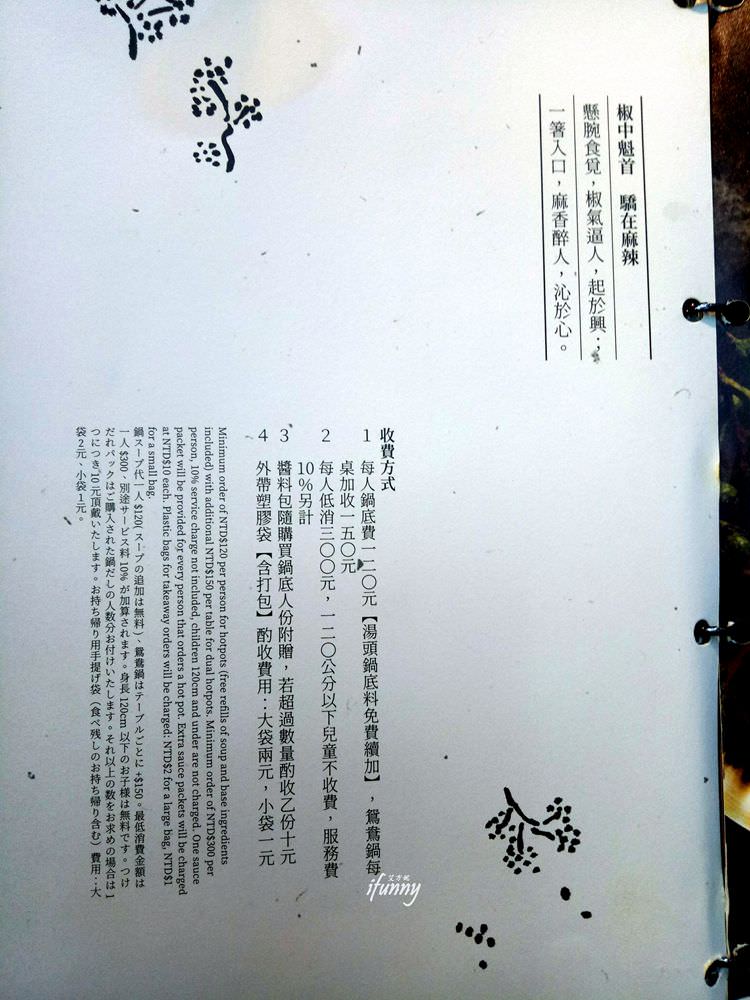 椒中魁首　驕在麻辣
懸腕食覓，椒氣逼人，起於興；
一箸入口，麻香醉人，沁於心。
收費方式
1 每人鍋底費一二〇元【湯頭鍋底料免費續加】，鴛鴦鍋每
桌加收一五〇元
2 每人低消三〇〇元，一二〇公分以下兒童不收費，服務費
10%另計
3 醬料包隨購買鍋底人份附贈，若超過數量酌收乙份十元
4 外帶塑膠袋【含打包】酌收費用：大袋兩元，小袋一元
Minimum order of NTD$120 per person for hotpots (free refills of soup and base ingredients
included) with additional NTD$150 per table for dual hotpots. Minimum order of NTD$300 per
person, 10% service charge not included, children 120cm and under are not charged. One sauce
packet will be provided for every person that orders a hot pot. Extra sauce packets will be charged
at NTD$10 each. Plastic bags for takeaway orders will be charged: NTD$2 for a large bag, NTD$1
for a small bag.
鍋スープ代一人 $120( スープの追加は無料 )、鴛鴦鍋はテーブルごとに +$150。最低消費金額は
一人 $300、別途サービス料 10% が加算されます。身長 120cm 以下のお子様は無料です。つけ
だれパックはご購入された鍋だしの人数分お付けいたします。それ以上の数をお求めの場合は 1
つにつき 10 元頂戴いたします。お持ち帰り用手提げ袋（食べ残しのお持ち帰り含む）費用：大
袋 2 元、小袋 1 元。
艾方妮
ifunny